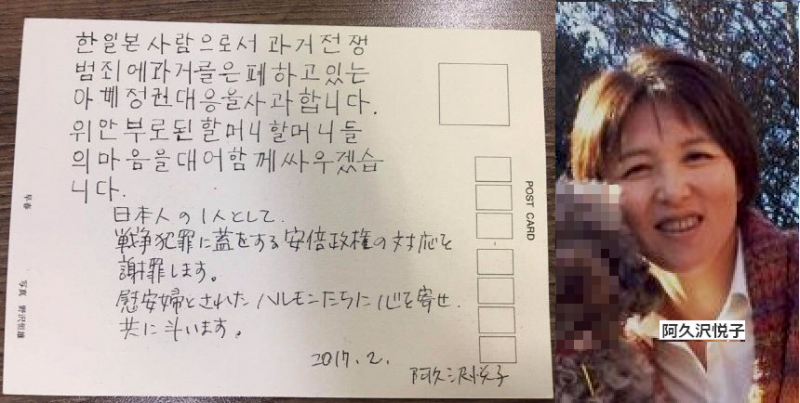 한일본사람으로서과거전쟁
범죄에과거를은폐하고있는
아베정권대응을사과합니다.
위안부로된할머니할머니들
의마음을대어함께싸우겠습
니다.
日本人の1人として、
戦争犯罪に蓋をする安倍政権の対応を
謝罪します。
慰安婦とされたハルモニたちに心を寄せ、
共に斗います。
2017.2.
阿久沢悦子
POST CARD
早春
写真
阿久沢悦子